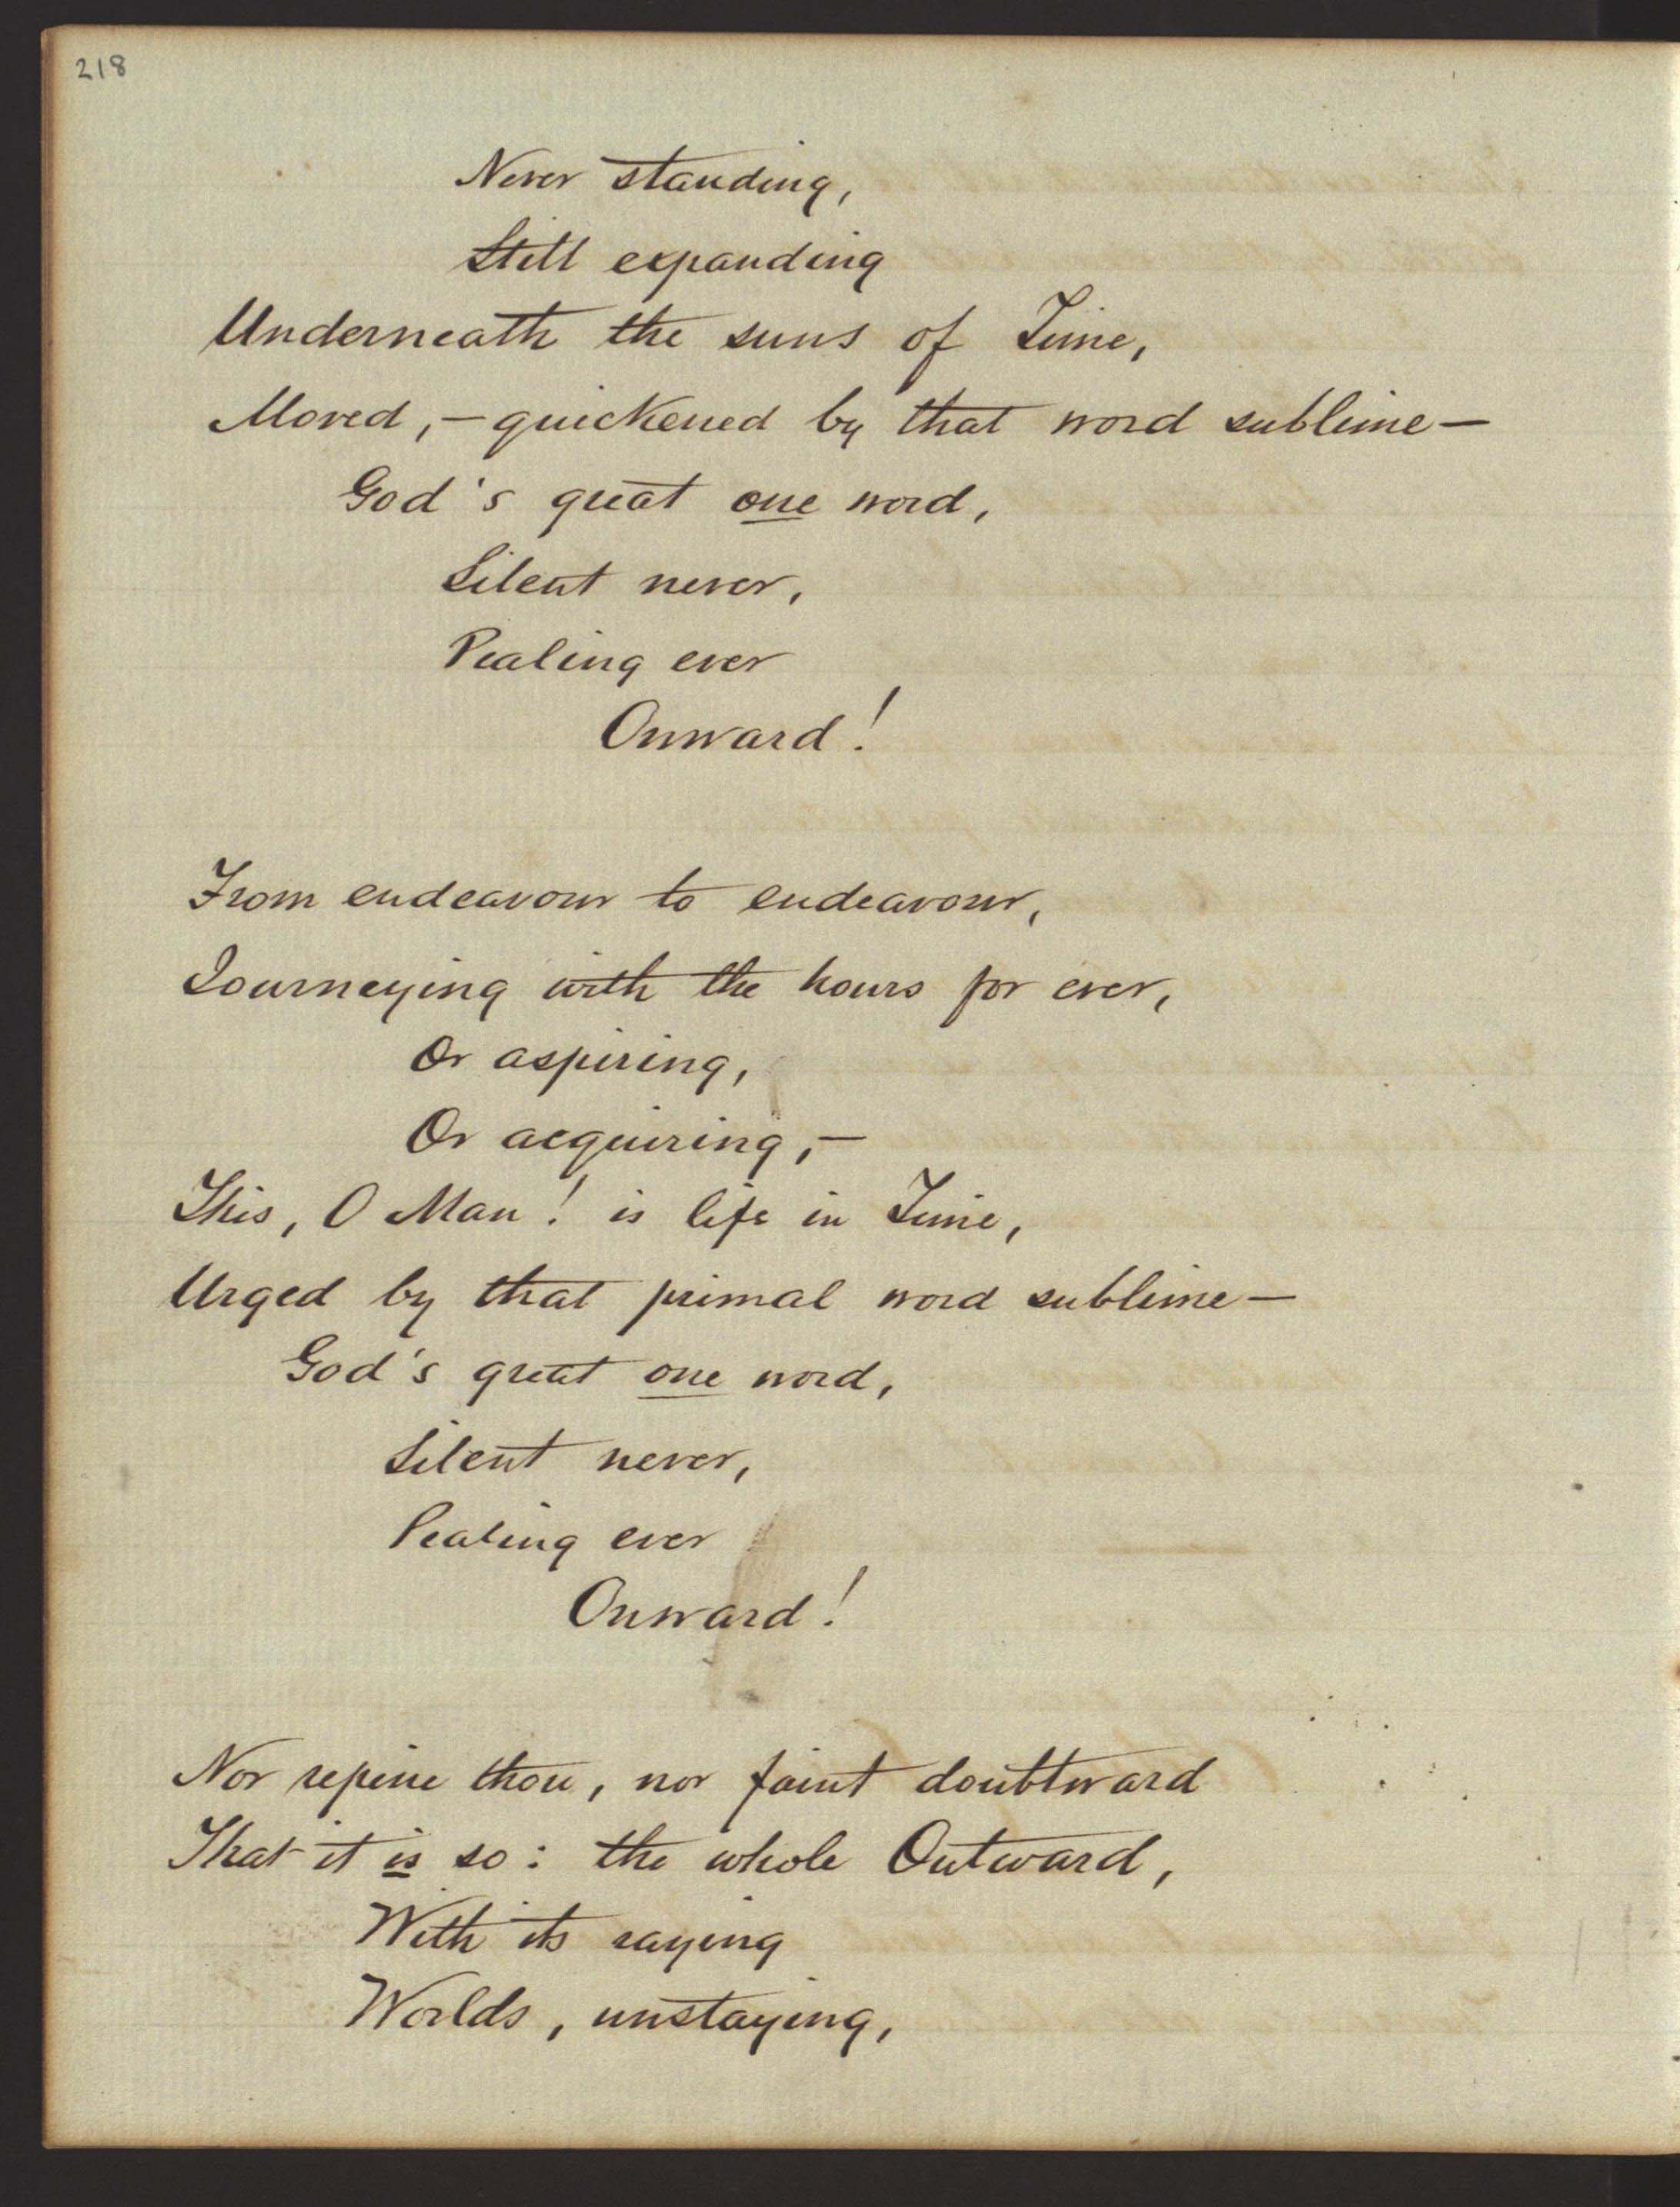 218
Never standing,
Still expanding
Underneath the suns of Time,
Moved,—quickened by that word sublime—
God's great one word,
Silent never,
Pealing ever
Onward!
From endeavour to endeavour,
Journeying with the hours for ever,
Or aspiring,
Or acquiring,—
This, O Man! is life in Time,
Urged by that primal word sublime—
God's great one word,
Silent never,
Pealing ever
Onward!
Nor repine thou, nor faint doubtward
That it is so: the whole Outward,
With its raying
Worlds, unstaying,